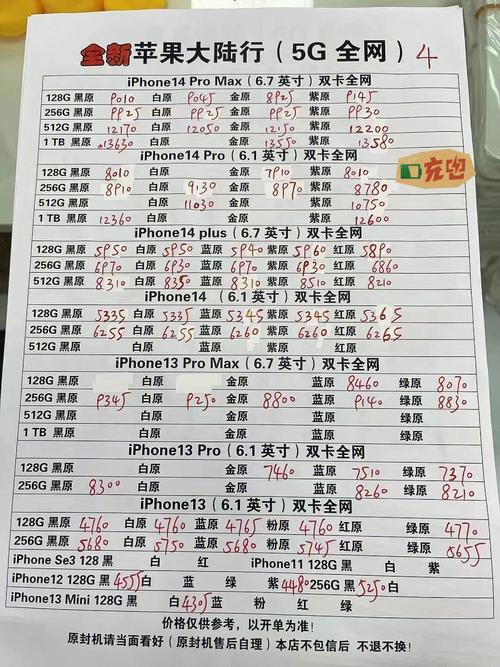 全新苹果大陆行（5G 全网） 4
iPhone14 Pro Max（6.7 英寸）双卡全网
128G 黑原 9010 白原 9045 金原 8925 紫原 9145
256G 黑原 9925 白原 9925 金原 9925 紫原 9930
512G 黑原 12170 白原 12050 金原 12150 紫原 12200
1 TB 黑原 13630 白原 金原 13550 紫原 13580
iPhone14 Pro（6.1 英寸）双卡全网
128G 黑原 8010 白原 金原 7910 紫原 8010
256G 黑原 8910 白原 9130 金原 8970 紫原 8780
512G 黑原 白原 11030 金原 紫原 10750
1 TB 黑原 12360 白原 金原 紫原 12600
iPhone14 plus（6.7 英寸）双卡全网
128G 黑原 5950 白原 5950 蓝原 5940 紫原 5960 红原 5890
256G 黑原 6970 白原 6930 蓝原 6970 紫原 6930 红原 6860
512G 黑原 8310 白原 8350 蓝原 8310 紫原 8510 红原 8210
iPhone14 （6.1 英寸）双卡全网
128G 黑原 5335 白原 5335 蓝原 5345 紫原 5345 红原 5365
256G 黑原 6255 白原 6255 蓝原 6260 紫原 6260 红原 6265
512G 黑原 白原 蓝原 紫原 红原
iPhone13 Pro Max（6.7 英寸）双卡全网
128G 黑原 白原 金原 蓝原 8460 绿原 8070
256G 黑原 9345 白原 9250 金原 8800 蓝原 9140 绿原 8830
512G 黑原 白原 金原 蓝原 绿原
1 TB 黑原 白原 金原 蓝原 绿原
iPhone13 Pro（6.1 英寸）双卡全网
128G 黑原 白原 金原 7460 蓝原 7510 绿原 7370
256G 黑原 8300 白原 金原 蓝原 8260 绿原 8210
iPhone13（6.1 英寸）双卡全网
128G 黑原 4760 白原 4760 蓝原 4765 粉原 4760 红原 绿原 4770
256G 黑原 5680 白原 5750 蓝原 5680 粉原 5745 红原 绿原 5655
iPhone Se3 128 黑 白 红 iPhone11 128G 黑 白 紫
iPhone12 128G 黑 4555 白 蓝 绿 紫 4480 256G 黑 5250 白
iPhone13 Mini 128G 黑 白 4305 蓝 粉 红 绿
价格仅供参考，以开单为准！
原封机请当面看好（原封机售后自理）本店不包信后 不退不换！